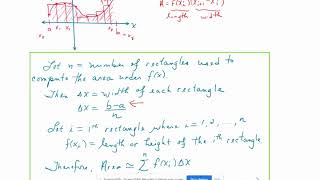 a x₁ x₂ b = xₙ
A = f(xᵢ)(xᵢ₊₁ - xᵢ)
length width
Let n = number of rectangles used to
compute the area under f(x).
Then Δx = width of each rectangle
Δx = b-a/n ←
Let i = iᵗʰ rectangle where i = 1, 2, ..., n
f(xᵢ) = length or height of the iᵗʰ rectangle
Therefore, Area ≃ Σ f(xᵢ) Δx
n